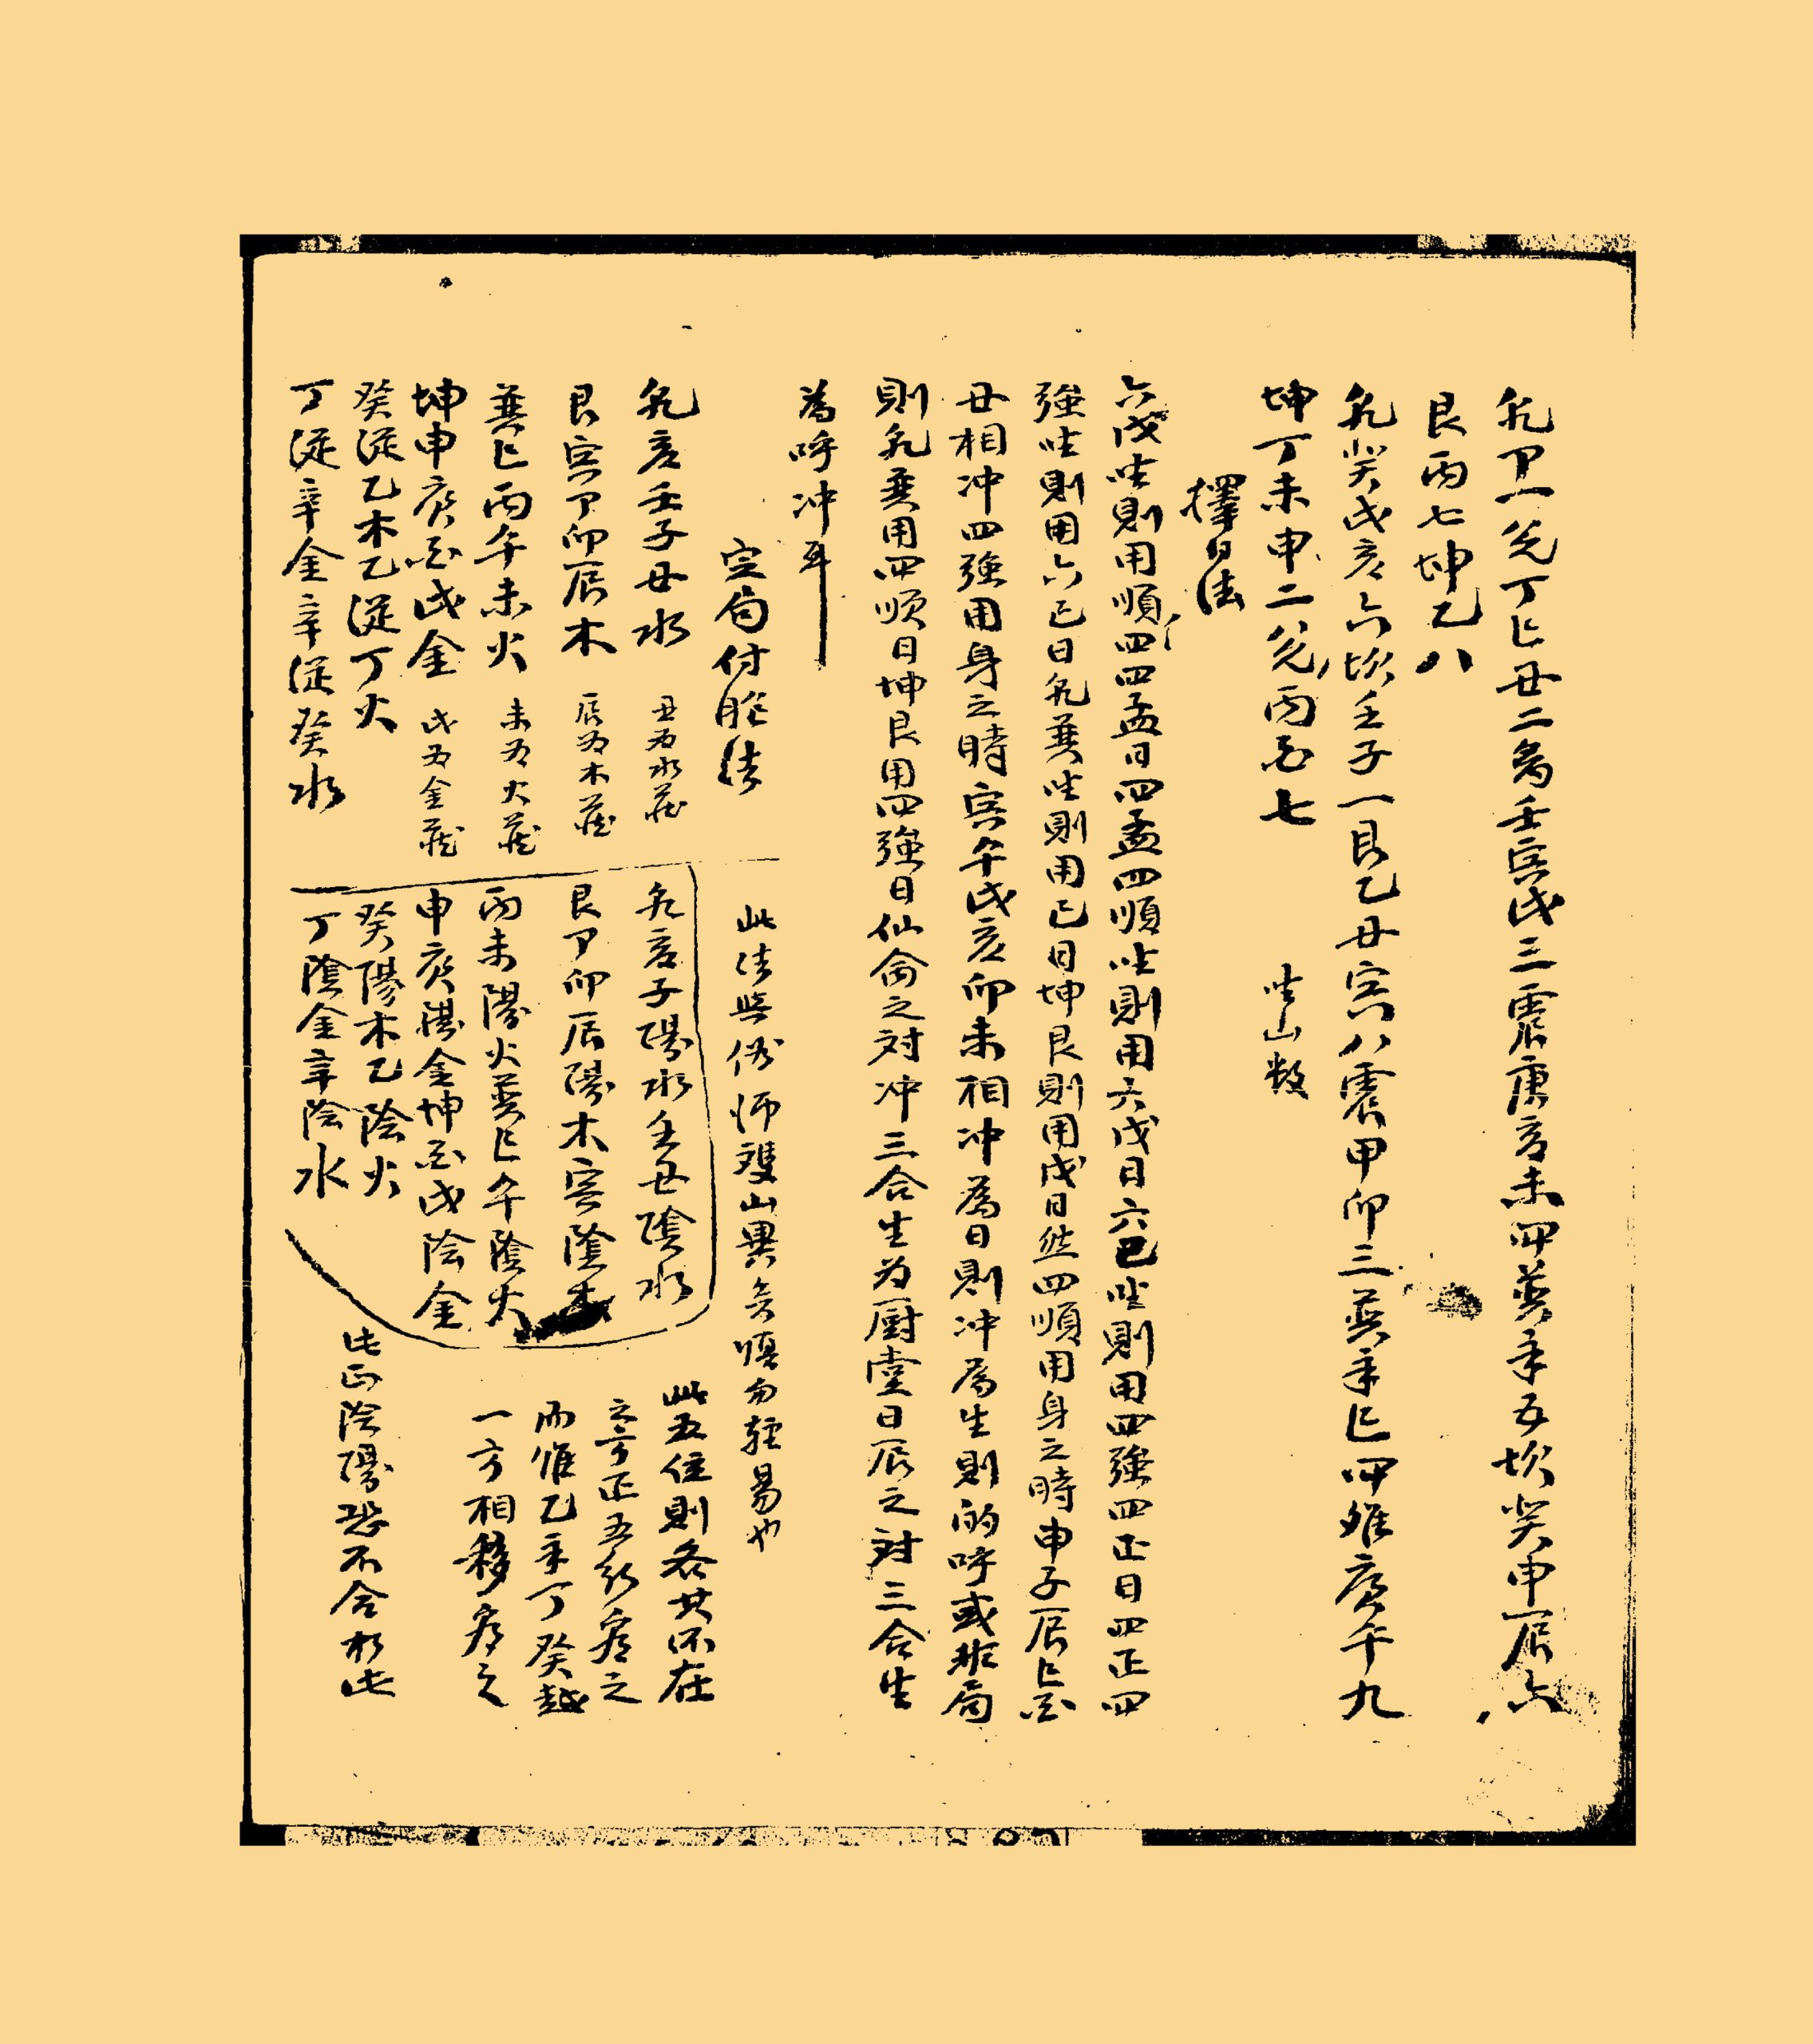 乾甲一兌丁巳丑二离壬寅戌三震庚亥未四巽辛五坎癸申辰六
艮丙七坤乙八
乾癸戌亥六坎壬子一艮乙丑寅八震甲卯三巽辛巳四离庚午九
坤丁未申二兌丙酉七 坐山数
擇日法
六戊坐則用順四四孟日四孟四順坐則用六戊日六巳坐則用四強四正日四正四
強坐則用六巳日乾巽坐則用巳日坤艮則用戊日然四順用身之時申子辰巳酉
丑相冲四強用身之時寅午戌亥卯未相冲為日則冲為生則的呼或非局
則乾巽用四順日坤艮用四強日仙命之対冲三合生为厨堂日辰之対三合生
為呼冲耳
定局付胞法
此法與俗师雙山異矣慎勿輕易也
乾亥壬子丑水 丑为水藏
艮寅甲卯辰木 辰为木藏
巽巳丙午未火 未为火藏
坤申庚酉戌金 戌为金藏
癸従乙木乙従丁火
丁従辛金辛従癸水
乾亥子陽水壬丑陰水
艮甲卯辰陽木寅陰木
丙未陽火巽巳午陰火
申庚陽金坤酉戌陰金
癸陽木乙陰火
丁陰金辛陰水
此五位則各其所在
之方正五行看之
而惟乙辛丁癸越
一方相移看之
此正陰陽恐不合於此